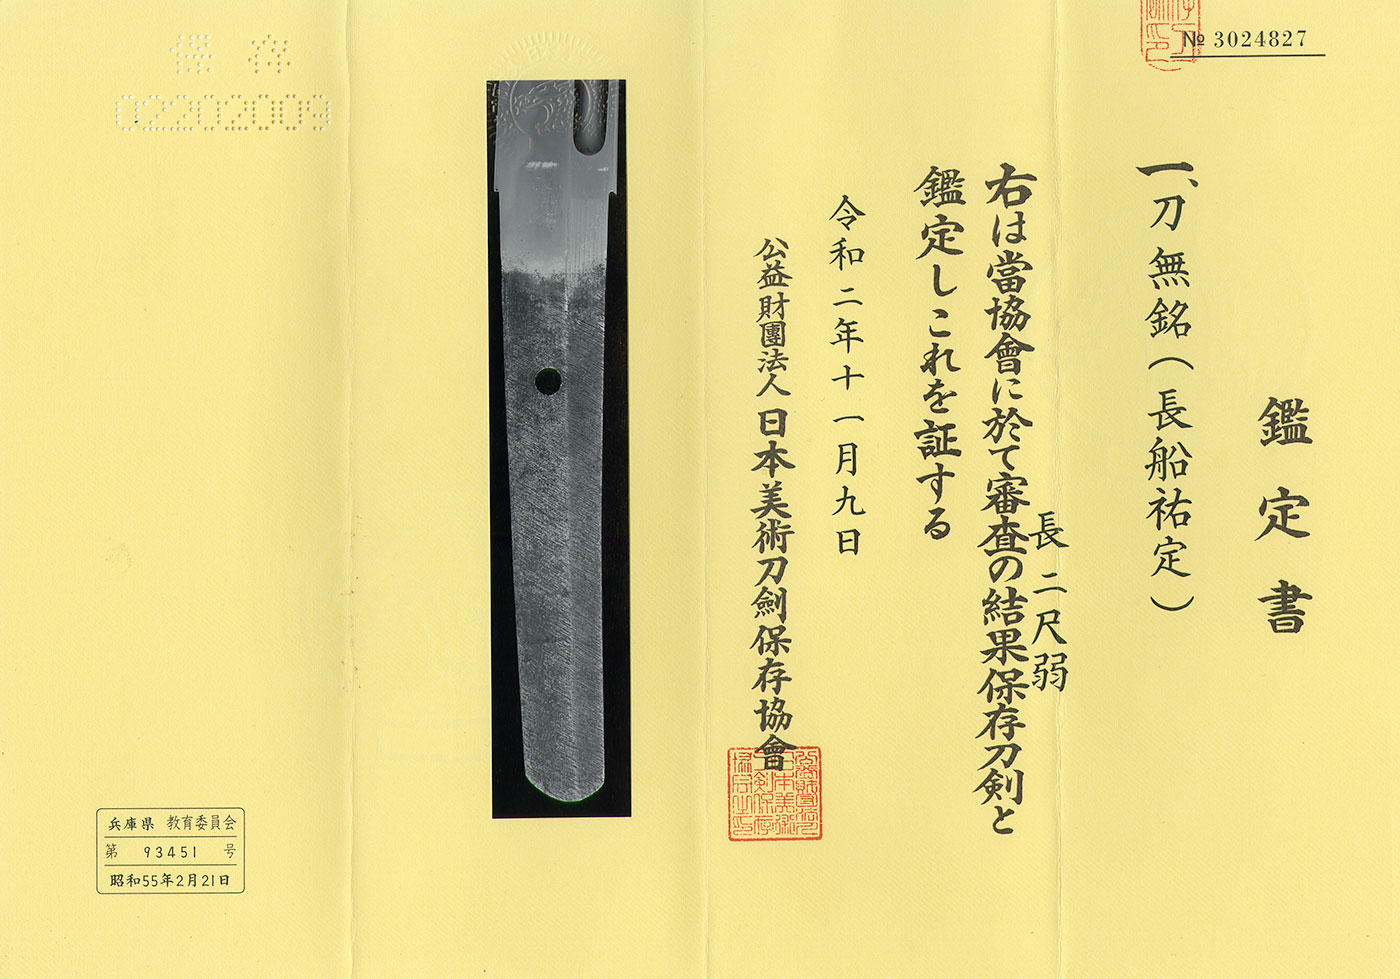 № 3024827
鑑定書
一、刀 無銘(長船祐定)
長 二尺弱
右は當協會に於て審査の結果保存刀剣と
鑑定しこれを証する
令和二年十一月九日
公益財團法人 日本美術刀劍保存協會
保存
02202009
兵庫県 教育委員会
第 93451 号
昭和55年2月21日